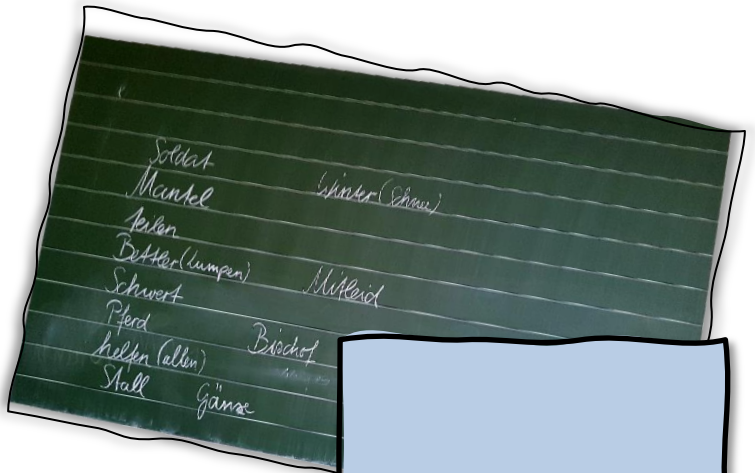 Soldat
Mantel Winter (Schnee)
teilen
Bettler (Lumpen) Mitleid
Schwert
Pferd Bischof
helfen (allen)
Stall Gänse